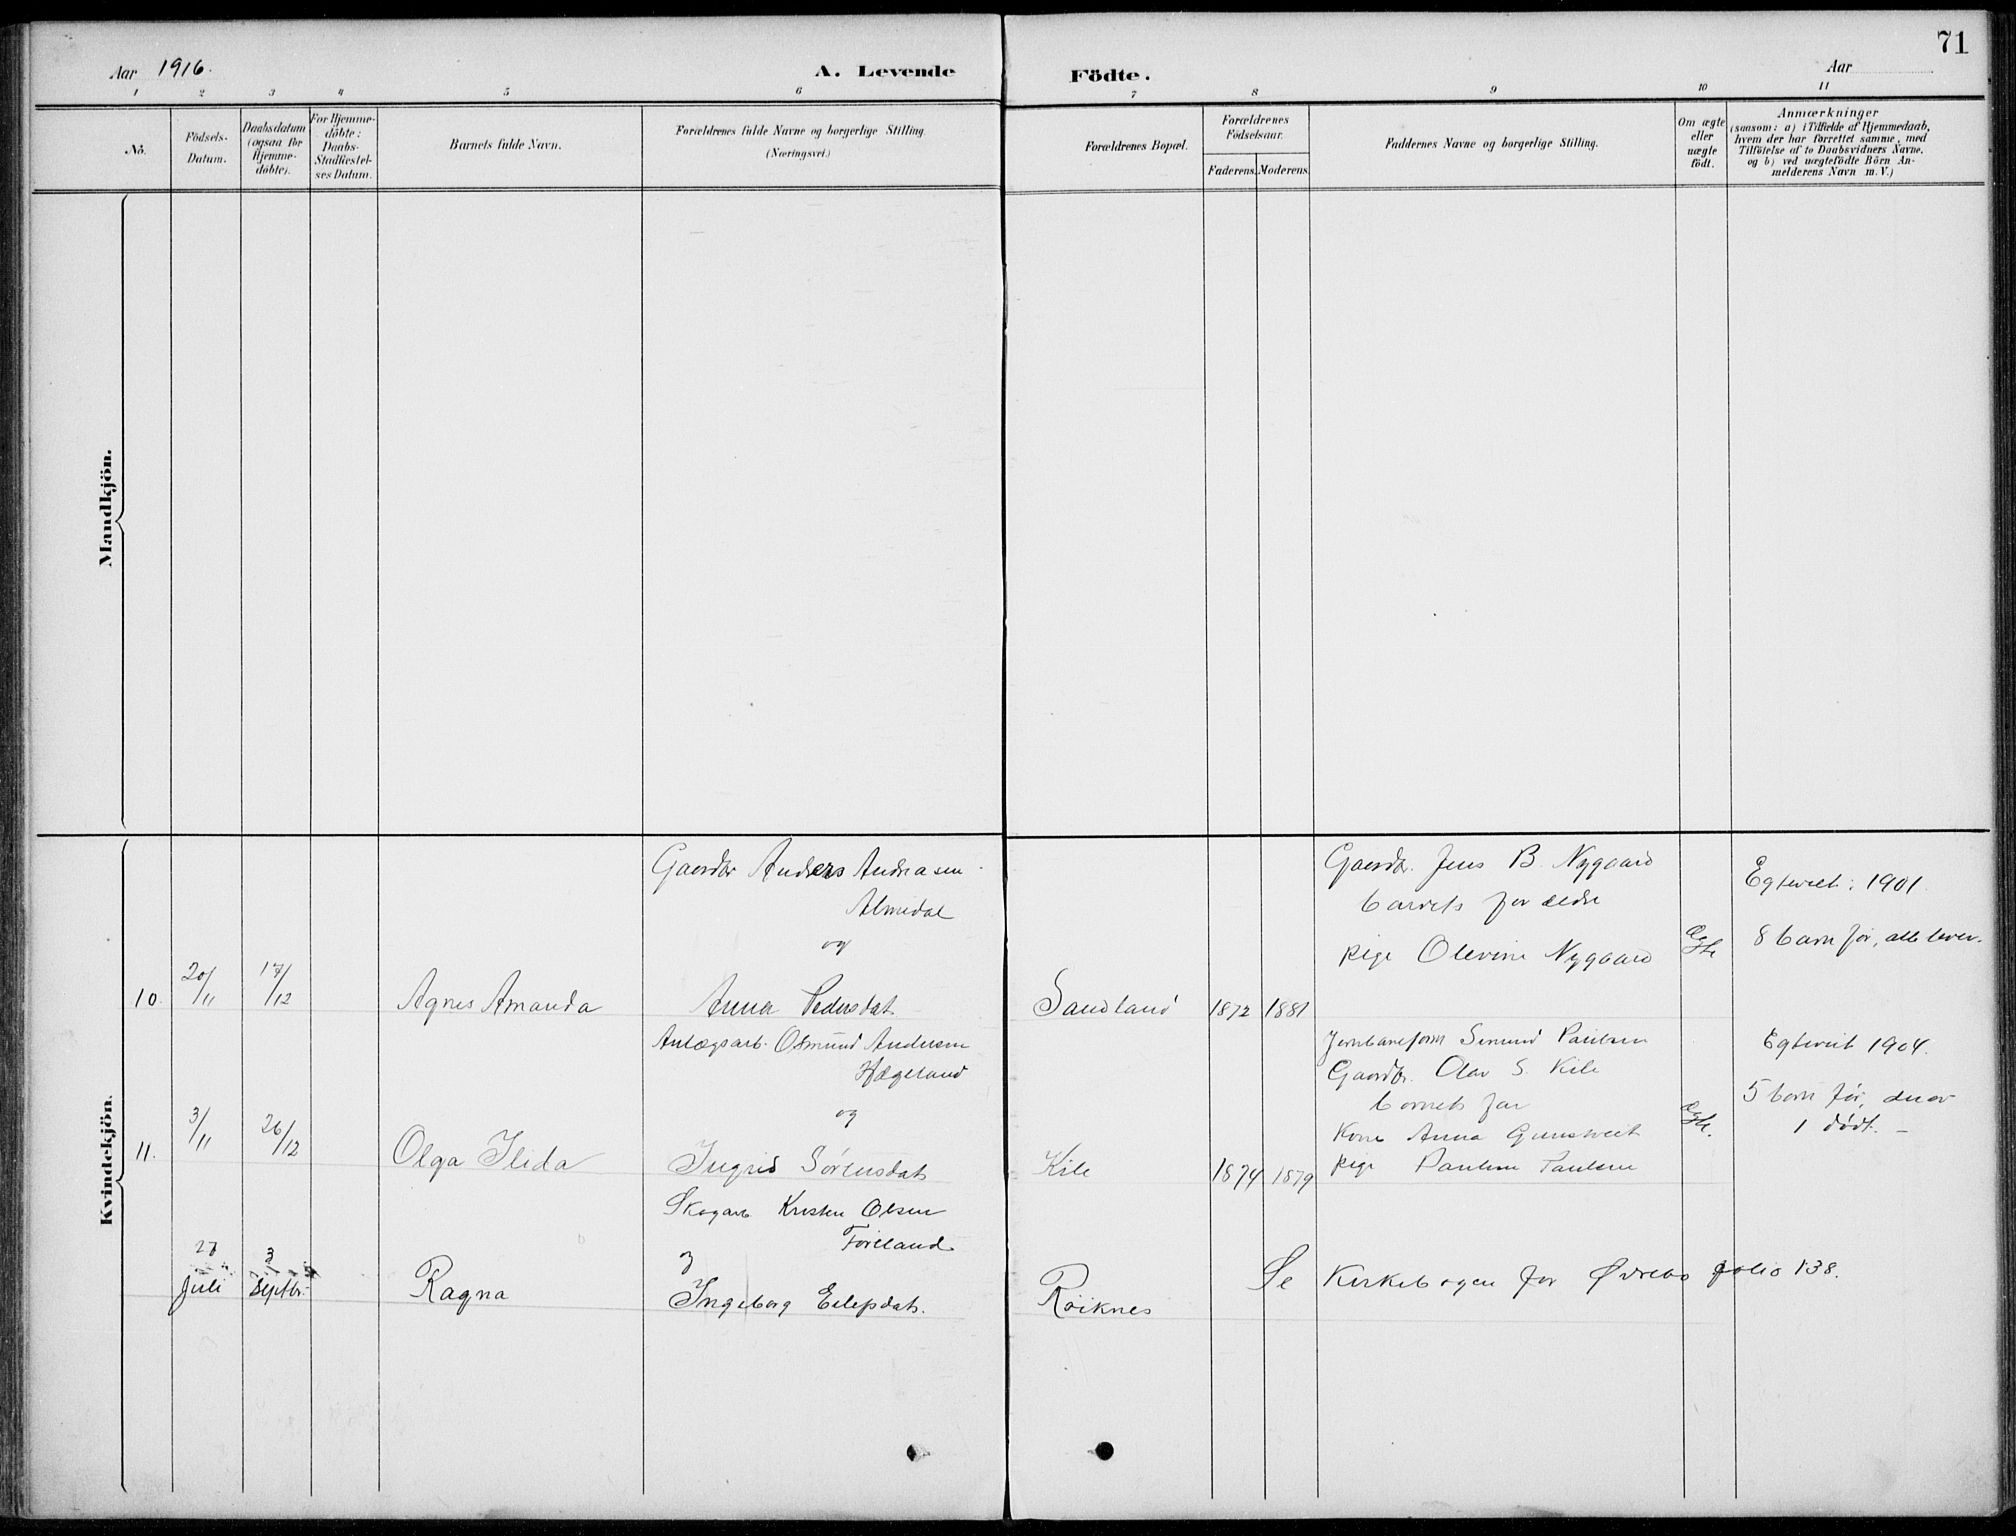 71
Aar 1916.
A. Levende Födte.
Aar
1 2 3 4 5 6 7 8 9 10 11
No.
Födsels-
Datum.
Daabsdatum
(ogsaa for
Hjemme-
döbte).
For Hjemme-
döbte:
Daabs-
Stadfæstel-
ses Datum.
Barnets fulde Navn.
Forældrenes fulde Navne og borgerlige Stilling.
(Næringsvei.)
Forældrenes Bopæl.
Forældrenes
Födselsaar.
Faderens. Moderens.
Faddernes Navne og borgerlige Stilling.
Om ægte
eller
uægte
födt.
Anmærkninger
(saasom: a) i Tilfælde af Hjemmedaab,
hvem der har forrettet samme, med
Tilföielse af to Daabsvidners Navne,
og b) ved uægtefödte Börn An-
melderens Navn m. V.)
Mandkjön.
Kvindekjön.
10. 20/11 17/12 Agnes Amanda
Gaardbr Anders Andreasen
Almedal
og
Anna Pedersdat.
Sandland 1872 1881
Gaardbr. Jens B. Nygaard
barnets forældre
pige Olevine Nygaard
Egte
Egteviet: 1901.
8 barn før, alle lever.
11. 3/11 26/12 Olga Ilida
Anlægsarb. Osmund Andersen
Hægeland
og
Ingrid Sørensdat.
Kile 1874 1879
Jernbaneform Simund Paulsen
Gaardbr. Olav S. Kile
barnets far
Kone Anna Gunstveit
pige Pauline Paulsen
Egte.
Egteviet 1904.
5 barn før, derav
1 dødt. –
27 Juli 3 Septbr. Ragna
Skogarb. Kristen Olsen
Føreland
og
Ingeborg Eilefsdat.
Røiknes
Se Kirkebogen for Øvrebø folio 138.